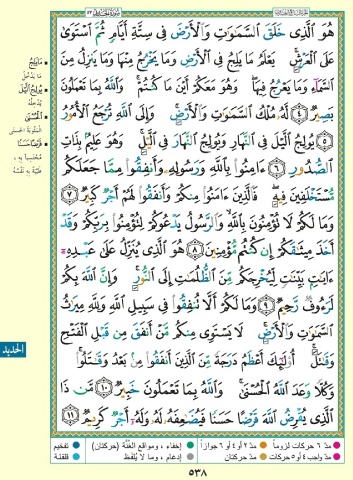 هُوَ ٱلَّذِى خَلَقَ ٱلسَّمَٰوَٰتِ وَٱلْأَرْضَ فِى سِتَّةِ أَيَّامٍ ثُمَّ ٱسْتَوَىٰ
عَلَى ٱلْعَرْشِ ۚ يَعْلَمُ مَا يَلِجُ فِى ٱلْأَرْضِ وَمَا يَخْرُجُ مِنْهَا وَمَا يَنزِلُ مِنَ
ٱلسَّمَآءِ وَمَا يَعْرُجُ فِيهَا ۖ وَهُوَ مَعَكُمْ أَيْنَ مَا كُنتُمْ ۚ وَٱللَّهُ بِمَا تَعْمَلُونَ
بَصِيرٌ ٤ لَّهُۥ مُلْكُ ٱلسَّمَٰوَٰتِ وَٱلْأَرْضِ ۚ وَإِلَى ٱللَّهِ تُرْجَعُ ٱلْأُمُورُ
٥ يُولِجُ ٱلَّيْلَ فِى ٱلنَّهَارِ وَيُولِجُ ٱلنَّهَارَ فِى ٱلَّيْلِ ۚ وَهُوَ عَلِيمٌۢ بِذَاتِ
ٱلصُّدُورِ ٦ ءَامِنُوا۟ بِٱللَّهِ وَرَسُولِهِۦ وَأَنفِقُوا۟ مِمَّا جَعَلَكُم
مُّسْتَخْلَفِينَ فِيهِ ۖ فَٱلَّذِينَ ءَامَنُوا۟ مِنكُمْ وَأَنفَقُوا۟ لَهُمْ أَجْرٌ كَبِيرٌ ٧
وَمَا لَكُمْ لَا تُؤْمِنُونَ بِٱللَّهِ ۙ وَٱلرَّسُولُ يَدْعُوكُمْ لِتُؤْمِنُوا۟ بِرَبِّكُمْ وَقَدْ
أَخَذَ مِيثَٰقَكُمْ إِن كُنتُم مُّؤْمِنِينَ ٨ هُوَ ٱلَّذِى يُنَزِّلُ عَلَىٰ عَبْدِهِۦٓ
ءَايَٰتٍۭ بَيِّنَٰتٍ لِّيُخْرِجَكُم مِّنَ ٱلظُّلُمَٰتِ إِلَى ٱلنُّورِ ۚ وَإِنَّ ٱللَّهَ بِكُمْ
لَرَءُوفٌ رَّحِيمٌ ٩ وَمَا لَكُمْ أَلَّا تُنفِقُوا۟ فِى سَبِيلِ ٱللَّهِ وَلِلَّهِ مِيرَٰثُ
ٱلسَّمَٰوَٰتِ وَٱلْأَرْضِ ۚ لَا يَسْتَوِى مِنكُم مَّنْ أَنفَقَ مِن قَبْلِ ٱلْفَتْحِ
وَقَٰتَلَ ۚ أُو۟لَٰٓئِكَ أَعْظَمُ دَرَجَةً مِّنَ ٱلَّذِينَ أَنفَقُوا۟ مِنۢ بَعْدُ وَقَٰتَلُوا۟ ۚ
وَكُلًّا وَعَدَ ٱللَّهُ ٱلْحُسْنَىٰ ۚ وَٱللَّهُ بِمَا تَعْمَلُونَ خَبِيرٌ ١٠ مَّن ذَا
ٱلَّذِى يُقْرِضُ ٱللَّهَ قَرْضًا حَسَنًا فَيُضَٰعِفَهُۥ لَهُۥ وَلَهُۥٓ أَجْرٌ كَرِيمٌ ١١
مَا يَلِجُ
مَا يَدْخُلُ
يُولِجُ ٱلَّيْلَ
يُدْخِلُهُ
ٱلْحُسْنَىٰ
قَرْضًا حَسَنًا
الحديد
مدّ ٦ حركات لزوماً
مدّ ٢ أو ٤ أو ٦ جوازاً
إخفاء، ومواقع الغُنَّة (حركتان)
تفخيم
مدّ واجب ٤ أو ٥ حركات
مدّ حركتان
إدغام، وما لا يُلفَظ
قلقلة
٥٣٨